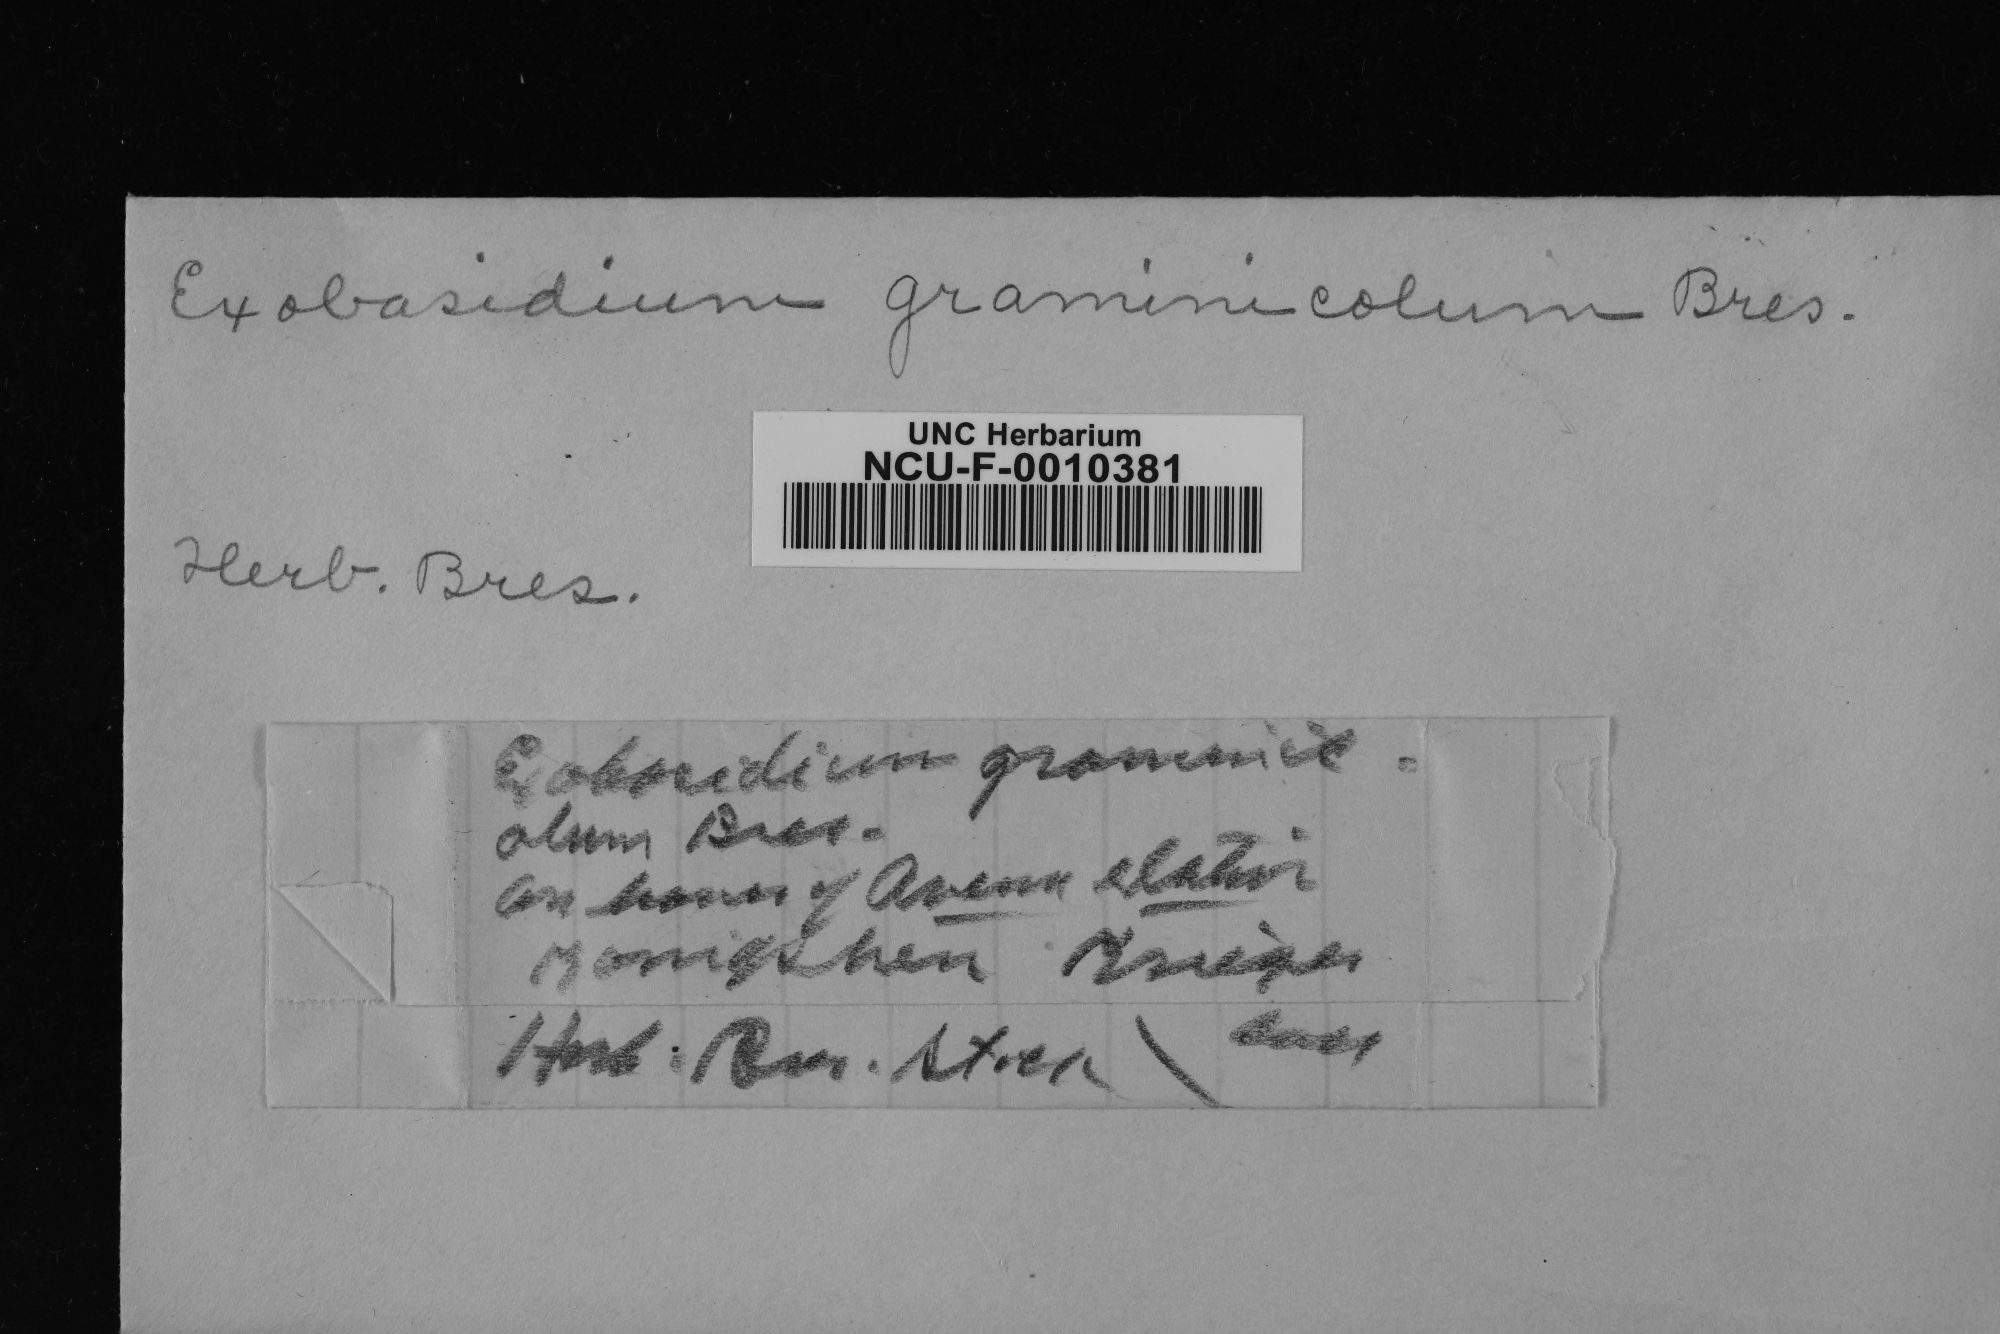 Exobasidium graminicolum Bres.
UNC Herbarium
NCU-F-0010381
Herb. Bres.
Exobasidium graminic-
olum Bres.
on leaves of Avena elatior
Königstein Krieger
Herb. Bres. Stock